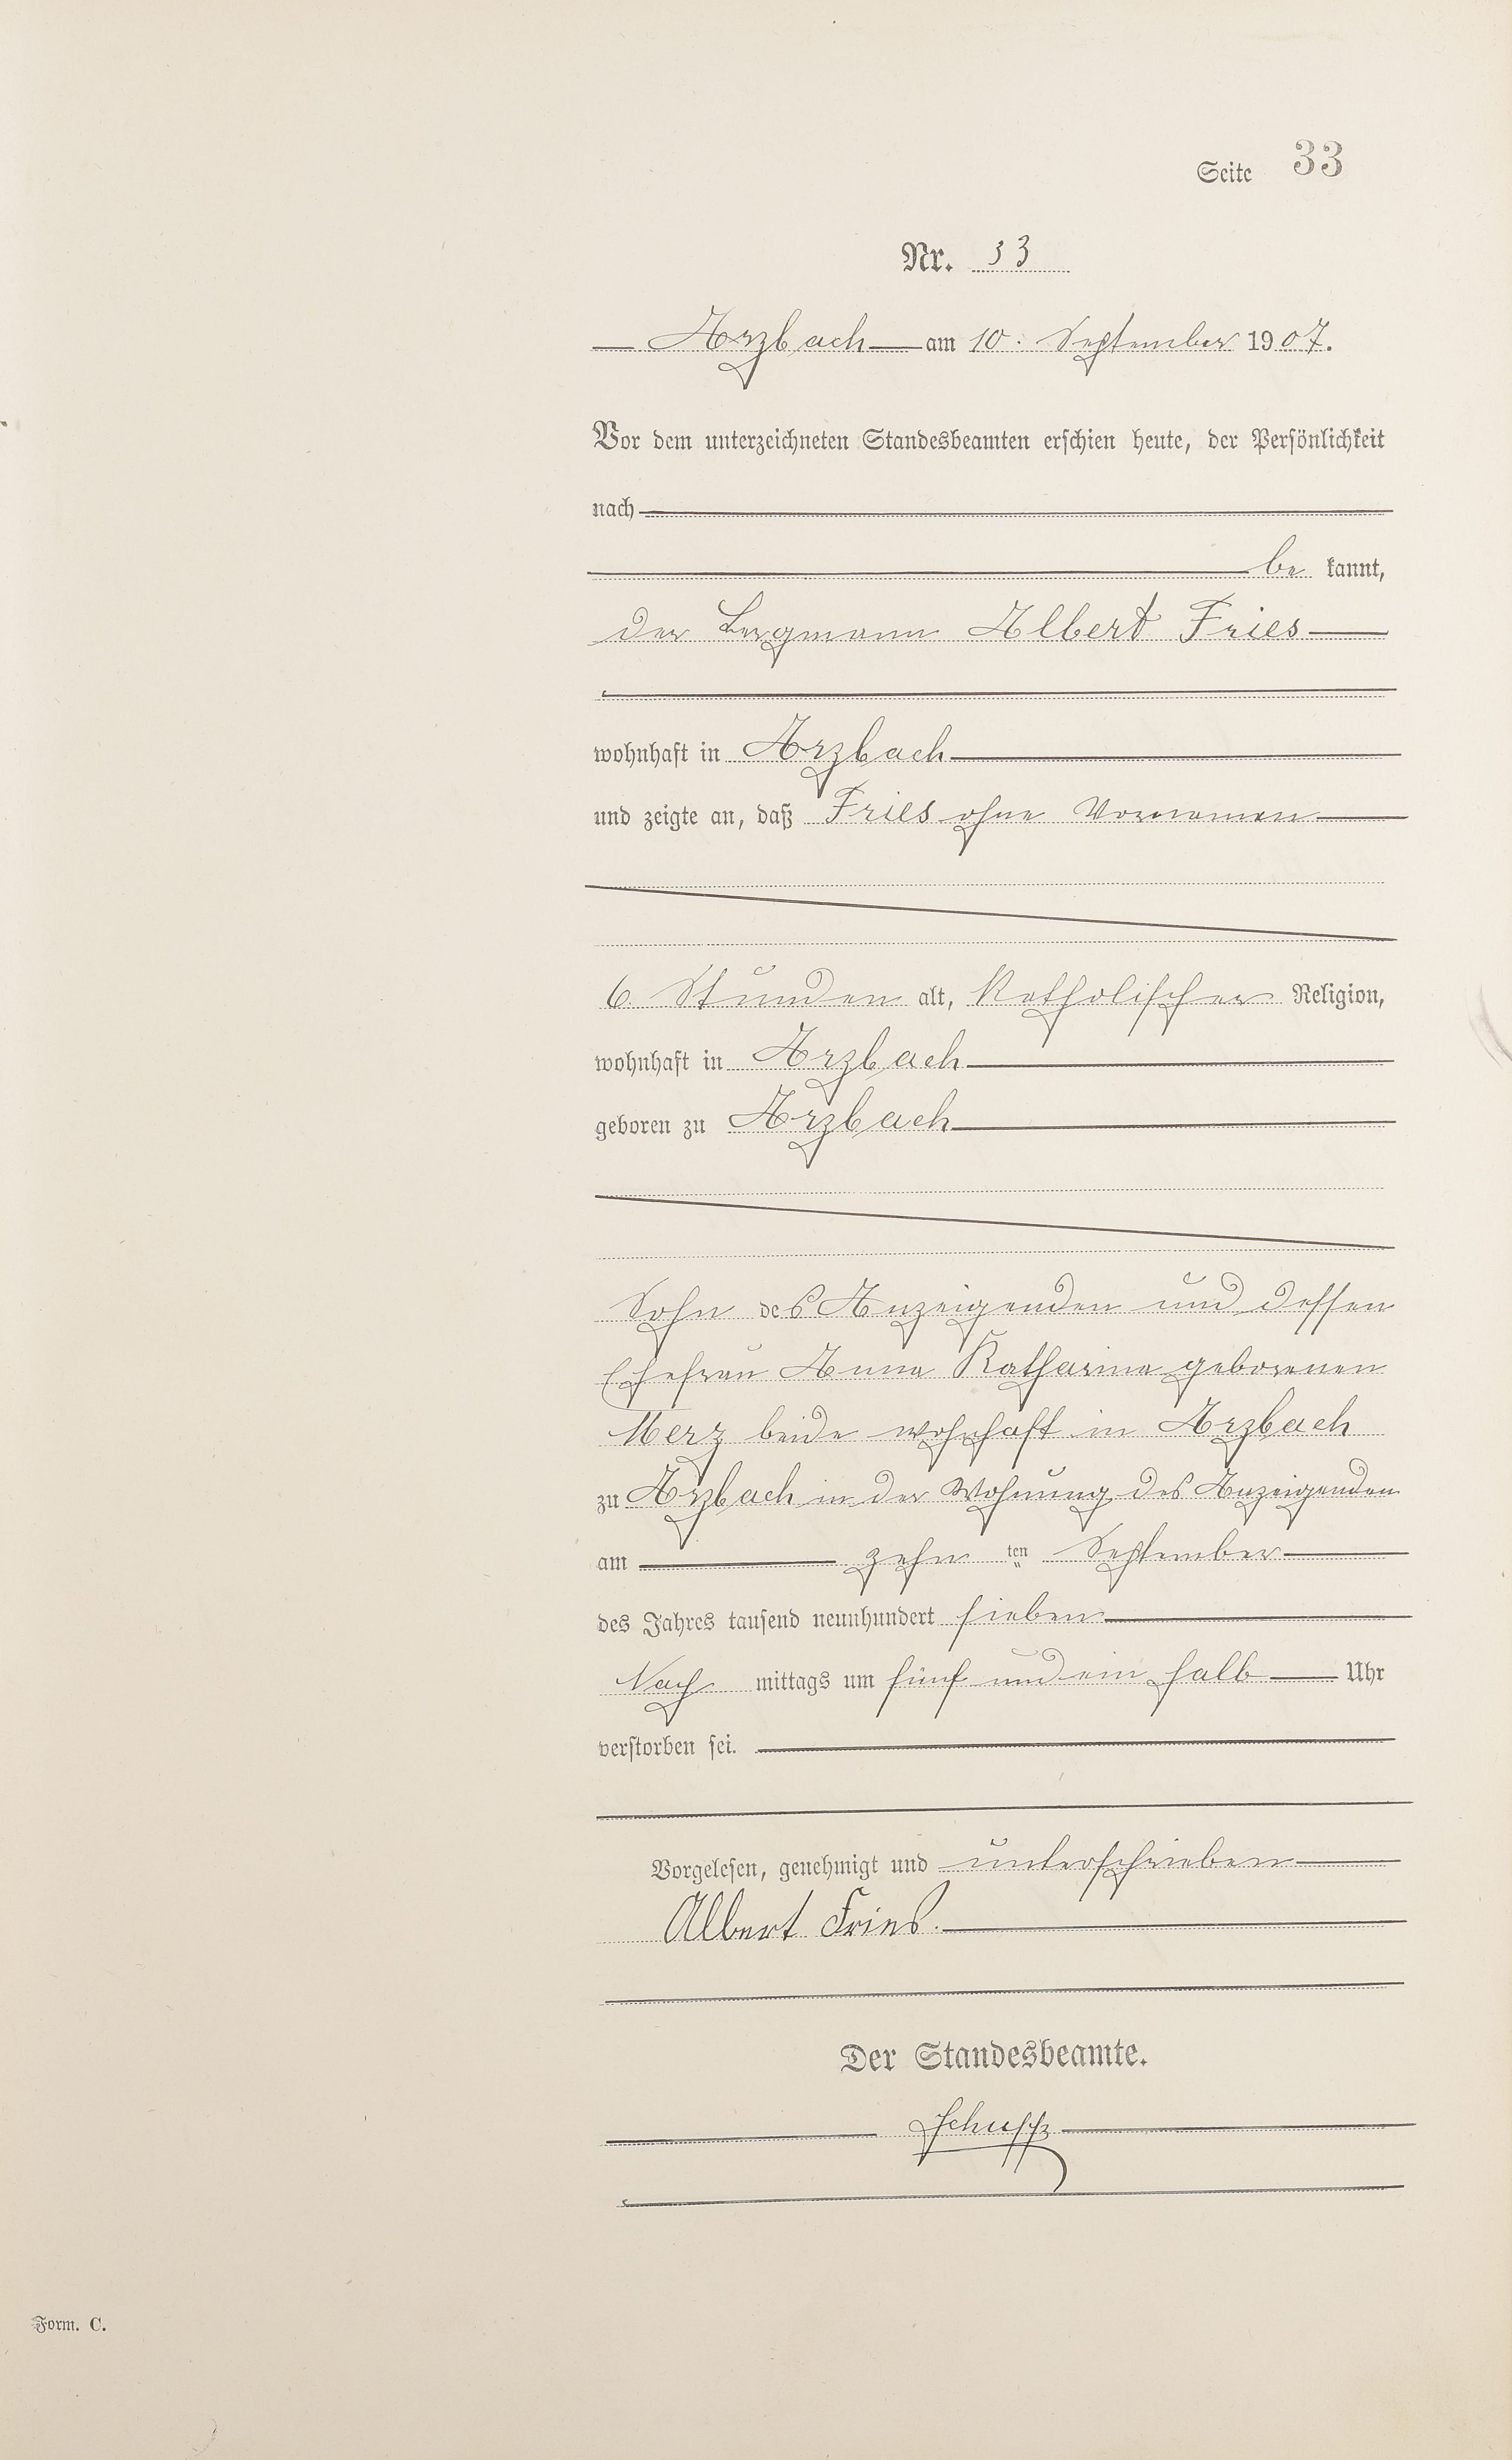 Seite 33
Nr. 33
Arzbach am 10. September 1907.
Vor dem unterzeichneten Standesbeamten erschien heute, der Persönlichkeit
nach
be kannt,
der Bergmann Albert Fries
wohnhaft in Arzbach
und zeigte an, daß Fries ohne Vornamen
6 Stunden alt, katholischer Religion,
wohnhaft in Arzbach
geboren zu Arzbach
Sohn des Anzeigenden und dessen
Ehefrau Anna Katharina geborenen
Merz beide wohnhaft in Arzbach
zu Arzbach in der Wohnung des Anzeigenden
am zehn ten September
des Jahres tausend neunhundert sieben
Nach mittags um fünf und ein halb Uhr
verstorben sei.
Vorgelesen, genehmigt und unterschrieben
Albert Fries.
Der Standesbeamte.
Form. C.